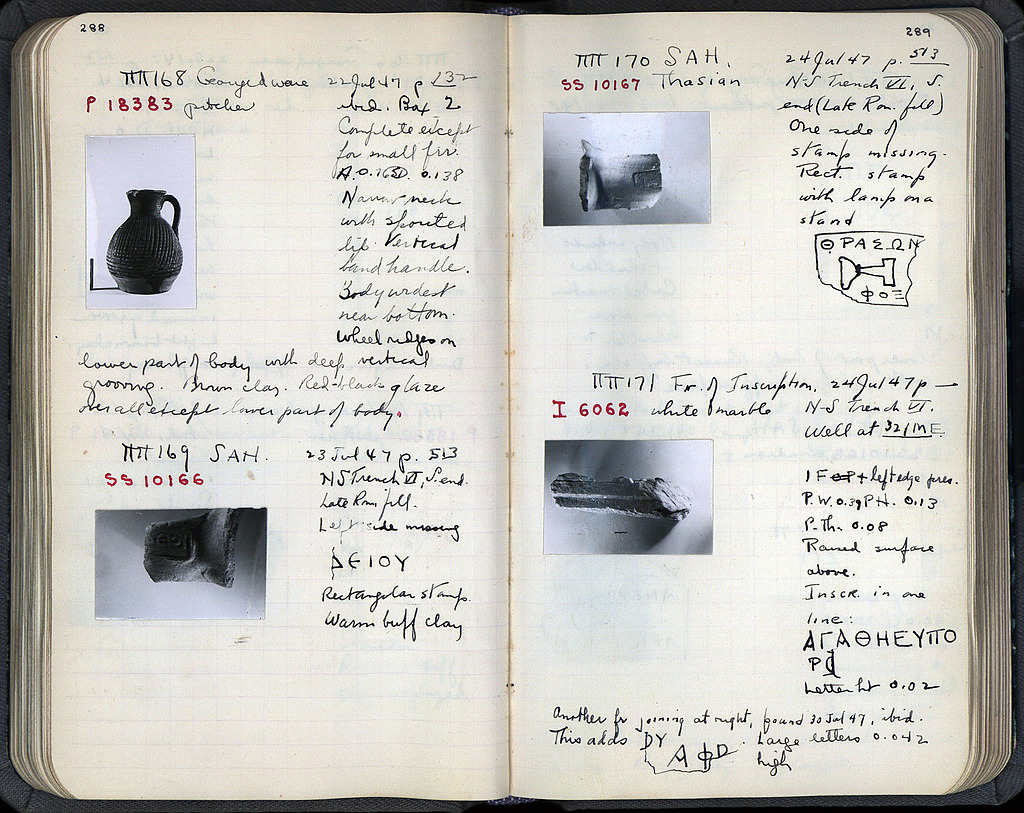 288
ΠΠ168 Gouged ware 22 Jul 47 p
P 18383 pitcher ibid. Box 2
Complete except
for small frr.
H. 0.165 D. 0.138
Narrow neck
with spouted
lip. Vertical
band handle.
Body widest
near bottom.
Wheel ridges on
lower part of body with deep, vertical
grooving. Brown clay. Red-black glaze
over all except lower part of body.
ΠΠ169 SAH. 23 Jul 47 p. 513
SS 10166 N S Trench VI, S. end.
Late Rom. fill.
Left side missing
ΔΕΙΟΥ
Rectangular stamp.
Warm buff clay
289
ΠΠ 170 SAH. 24 Jul 47 p. 513
SS 10167 Thasian N-S Trench VI, S.
end (Late Rom. fill)
One side of
stamp missing.
Rect. stamp
with lamp on a
stand
ΘΡΑΣΩΝ
ΦΟΞ
ΠΠ171 Fr. of Inscription. 24 Jul 47 p —
I 6062 white marble N-S Trench VI.
Well at 32/ΜΕ
left edge pres.
P.W. 0.39 P.H. 0.13
P.Th. 0.08
Raised surface
above.
Inscr. in one
line:
ΑΓΑΘΗΕΥΠΟ
Ρ
Letter ht 0.02
Another fr joining at right, found 30 Jul 47, ibid.
This adds ΔΥ Large letters 0.042
high